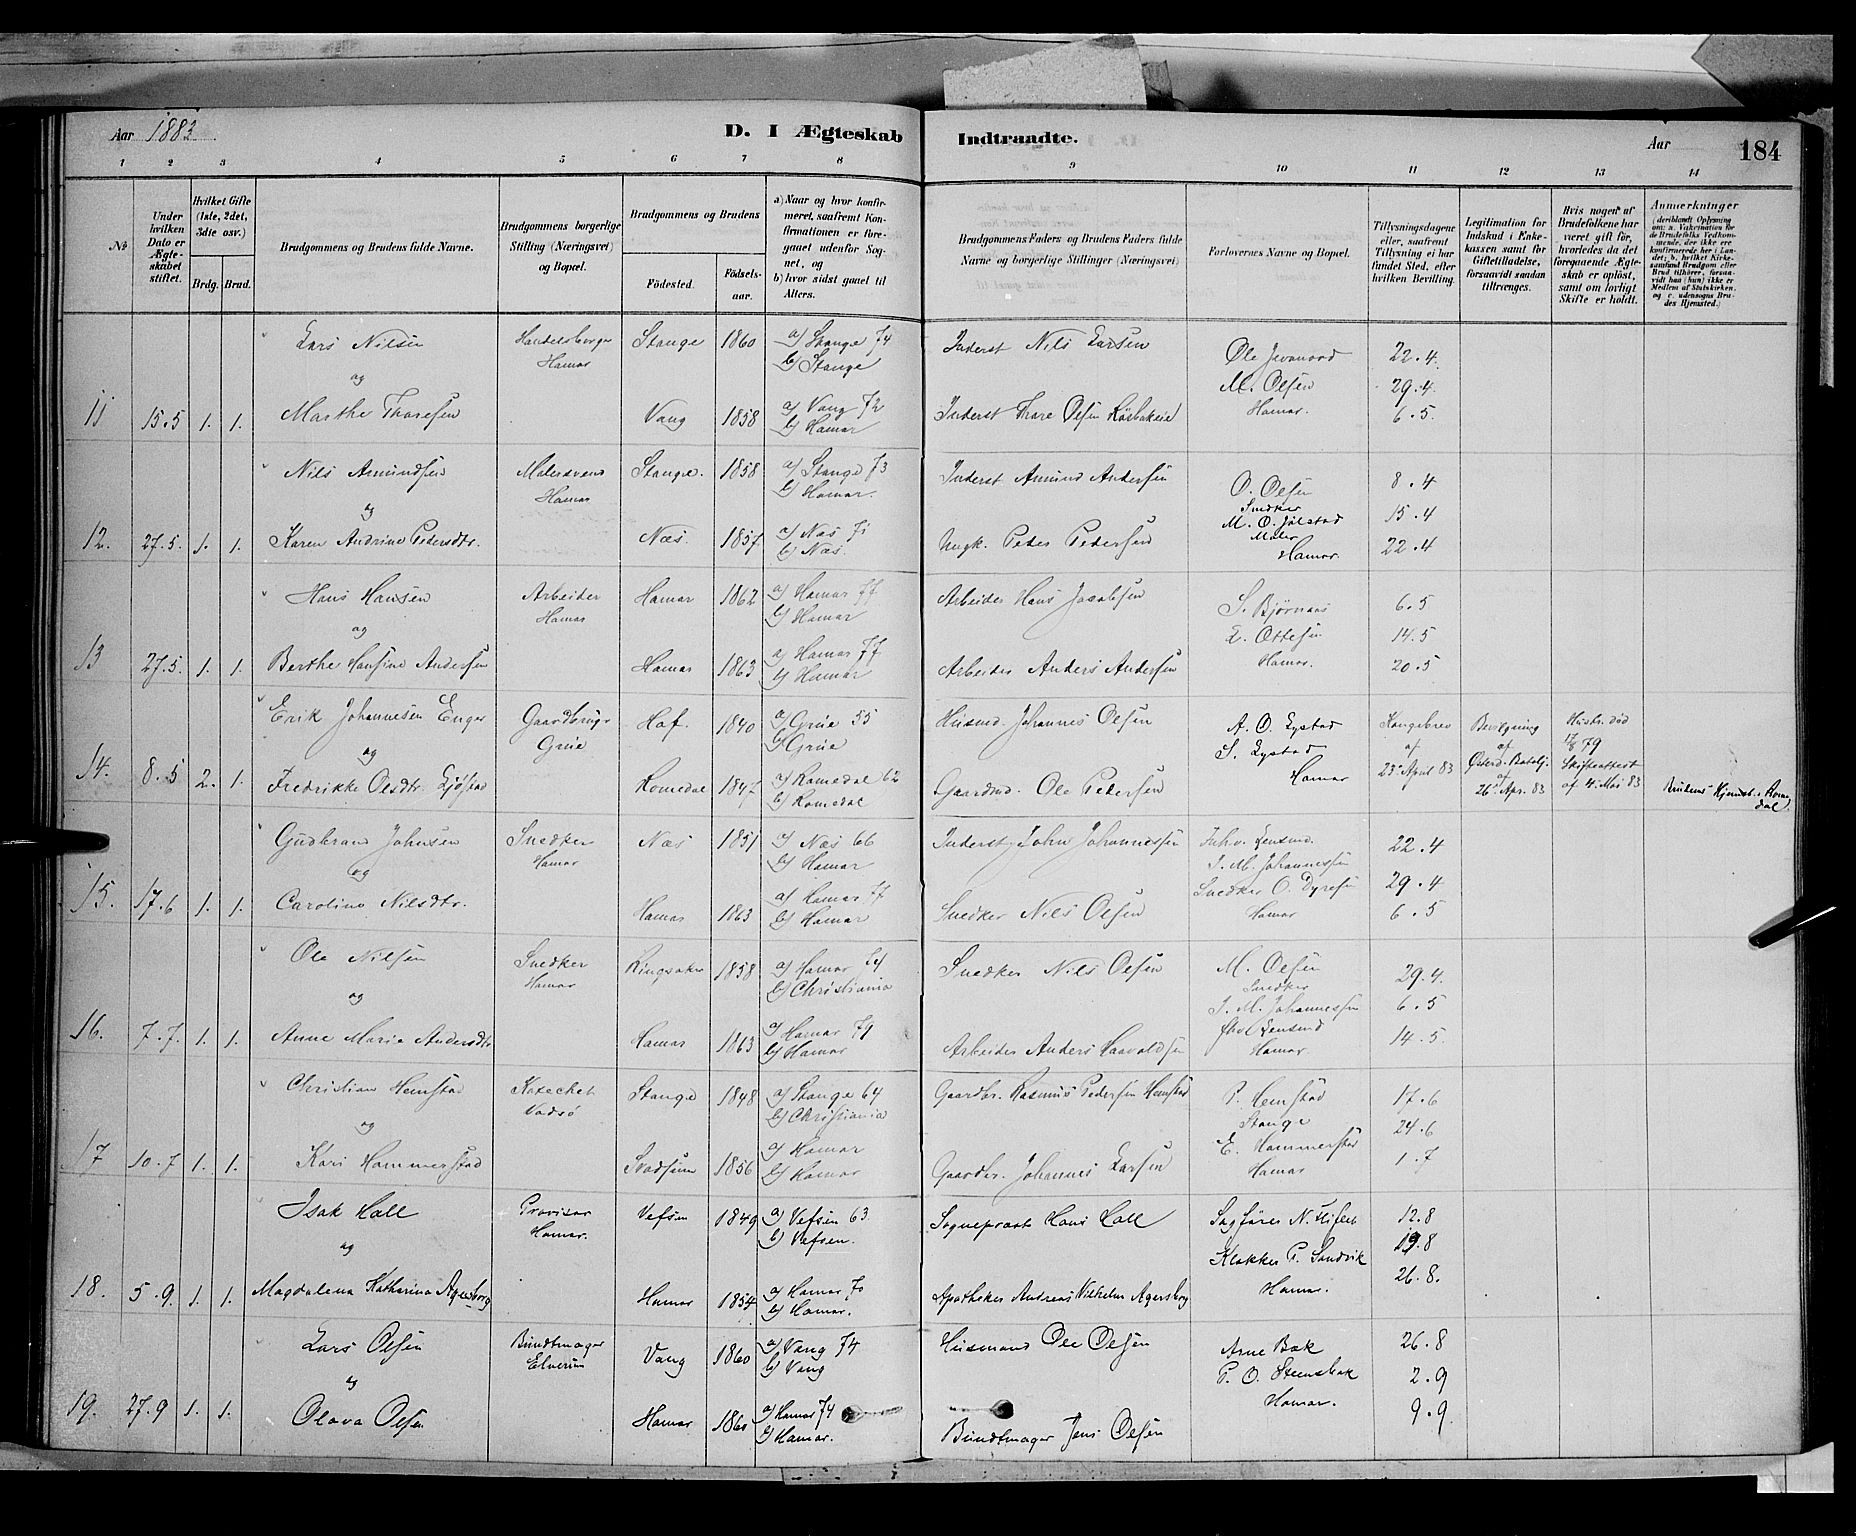 Aar 1883. D. I Ægteskab Indtraadte. Aar 184
1 2 3 4 5 6 7 8 9 10 11 12 13 14
No
Under hvilken Dato er Ægteskabet stiftet.
Hvilket Gifte (1ste, 2det, 3die osv.)
Brdg. Brud.
Brudgommens og Brudens fulde Navne.
Brudgommens borgerlige Stilling (Næringsvei) og Bopæl.
Brudgommens og Brudens
Fødested. Fødselsaar.
a) Naar og hvor konfirmeret, saafremt Konfirmationen er foregaaet udenfor Sognet, og
b) hvor sidst gaaet til Alters.
Brudgommens Faders og Brudens Faders fulde Navne og borgerlige Stillinger (Næringsvei)
Forlovernes Navne og Bopæl.
Tillysningsdagene eller, saafremt Tillysning ei har fundet Sted, efter hvilken Bevilling.
Legitimation for Indskud i Enkekassen samt for Giftetilladelse, forsaavidt saadan tiltrænges.
Hvis nogen af Brudefolkene har været gift før, hvorledes da det foregaaende Ægteskab er opløst, samt om lovligt Skifte er holdt.
Anmærkninger (deriblandt Oplysning om: a. Vakcination for de Brudefolks Vedkommende, der ikke ere konfirmerede her i Landet; b. hvilket Kirkesamfund Brudgom eller Brud tilhører, forsaavidt han (hun) ikke er Medlem af Statskirken, og c. udensogns Brudes Hjemsted.)
Lars Nilsen Handelsborger Stange 1860 a) Stange 74 Inderst Nils Larsen 22.4.
og Hamar b) Stange M. Olsen 29.4
11 15.5 1. 1. Marthe Thoresen Vang 1858 a) Vang 72 Inderst Thore Olsen Hamar. 6.5
b) Hamar
Nils Amundsen Malersvend Stange. 1858 a) Stange 73 Inderst Amund Andersen O. Olsen 8.4
og Hamar b) Hamar. Snedker
M. O. Jølstad 15.4
12. 27.5. 1. 1. Karen Andrine Pedersdtr. Næs. 1857 a) Næs 71 Ungk. Peder Pedersen Maler
b) Næs. Hamar. 22.4
Hans Hansen Arbeider Hamar 1862 a) Hamar 77 Arbeider Hans Jacobsen S. Bjørnaas 6.5
og Hamar b) Hamar E. Ottesen 14.5
13 27.5. 1. 1. Berthe Hansine Andersen Hamar 1863 a) Hamar 77 Arbeider Anders Andersen Hamar. 20.5
b) Hamar
Erik Johannesen Enger Gaardbruger Hof. 1840 a) Grue 55 Husmd. Johannes Olsen A. O. Lystad Kongebrev Bevilgning Hustr. død
og Grue b) Grue S. Lystad af af 79
14. 8.5 2. 1. Fredrikke Olsdtr. Romedal 1847 a) Romedal 62 Gaardmd. Ole Pedersen Hamar 23. April 83 Østerd. Batalj. Skifteattest
b) Romedal af 26. Apr. 83 af 4. Mai 83 Brudens Hjemst. Romedal.
Gudbrand Johnsen Snedker Næs 1851 a) Næs 66 Inderst John Johannesen 22.4
og Hamar b) Hamar J. M. Johannessen
15. 17.6 1. 1. Caroline Nilsdtr. Hamar 1863 a) Hamar 77 Snedker Nils Olsen Snedker O. Dyresen 29.4
b) Hamar Hamar 6.5
Ole Nilsen Snedker Ringsaker 1858 a) Hamar Snedker Nils Olsen M. Olsen 29.4.
og Hamar b) Christiania Snedker
J. M. Johannessen 6.5
16. 7.7. 1. 1. Anne Marie Andersdtr Hamar 1863 a) Hamar 79 Arbeider Anders Haavaldsen Hamar. 14.5.
b) Hamar
Christian Hemstad Katechet Stange 1848 a) Stange 64 Gaardbr. Rasmus Pedersen Hemstad P. Hemstad 17.6
og Vadsø b) Christiania Stange 24.6
17 10.7 1. 1. Kari Hammerstad 1856 a) Hamar Gaardbr. Johannes Larsen E. Hammerstad 1.7
b) Hamar Hamar
Isak Hall Provisor Vefsen 1849 a) Vefsen 63. Sogneprest Hans Hall Sagfører N. 12.8
og Hamar. b) Vefsen. Klokker P. Sandvik 19.8
18. 5.9. 1. 1. Magdalena Katharina Agersborg Hamar 1854 a) Hamar 70 Apotheker Andreas Vilhelm Agersborg Hamar. 26.8.
b) Hamar.
Lars Olsen Bundtmager Vang 1860 a) Vang 74 Husmand Ole Olsen Arne Bak 26.8
og Elverum b) Vang P. O. Steensbak 2.9
19. 27.9 1. 1. Olava Olsen Hamar 1860 a) Hamar 74 Bundtmager Jens Olsen Hamar. 9.9
b) Hamar.